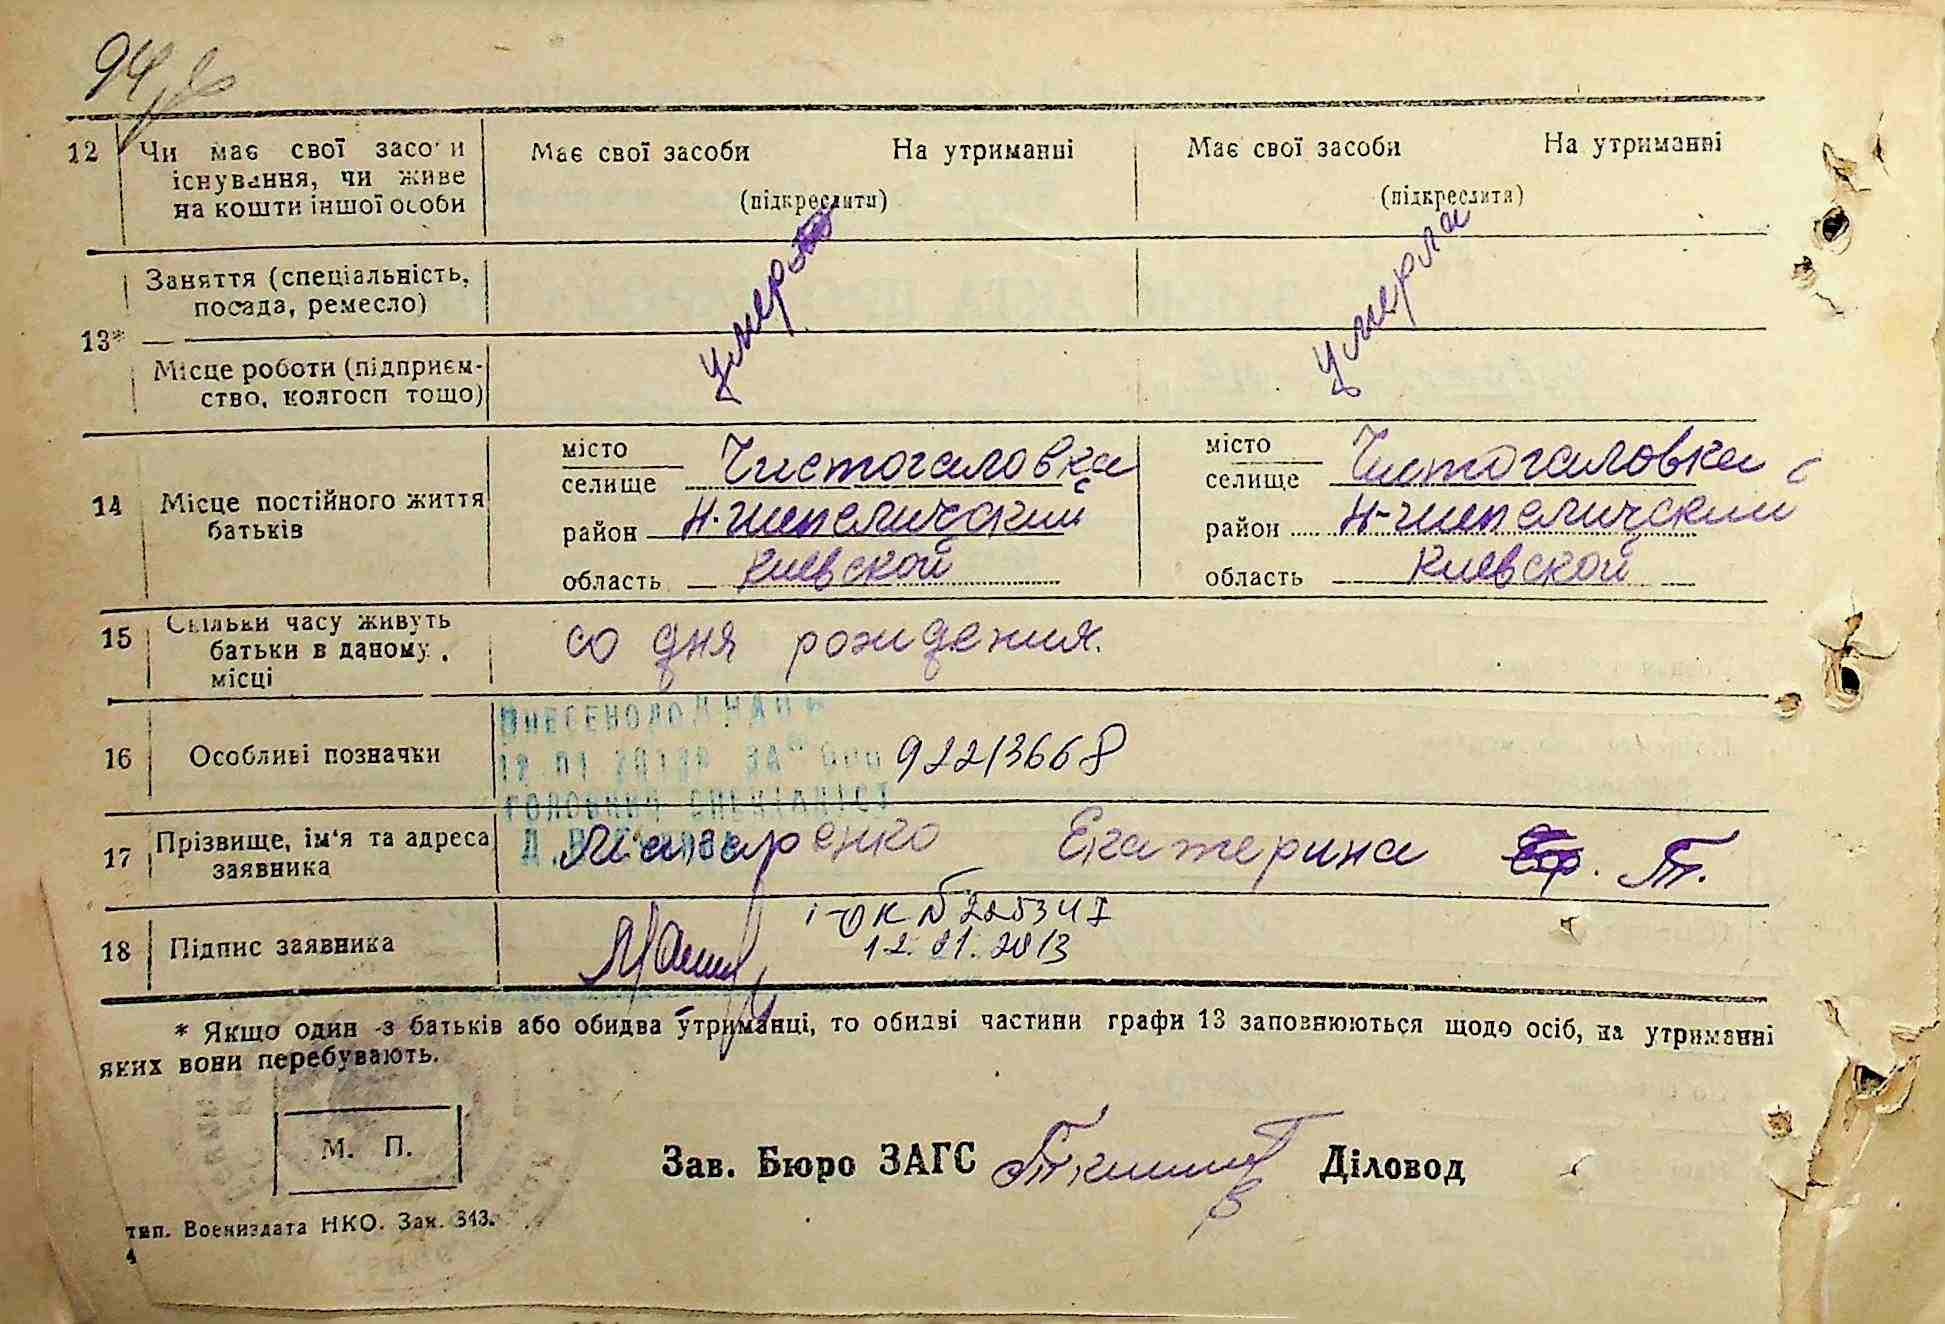 94
12 Чи має свої засоби Має свої засоби На утриманні Має свої засоби На утриманні
існування, чи живе
на кошти іншої особи (підкреслити) (підкреслити)
умер умерла
Заняття (спеціальність,
посада, ремесло)
13*
Місце роботи (підприєм-
ство, колгосп тощо)
місто Чистогаловка місто Чистогаловка с
селище селище
14 Місце постійного життя
батьків район Н-шепеличский район Н-шепеличский
область Киевской область Киевской
15 Скільки часу живуть
батьки в даному со дня рождения.
місці
16 Особливі позначки 92213668
17 Прізвище, ім'я та адреса Макаренко Екатерина Т.
заявника
18 Підпис заявника
12.01.2013
* Якщо один з батьків або обидва утриманці, то обидві частини графи 13 заповнюються щодо осіб, на утриманні
яких вони перебувають.
М. П.
Зав. Бюро ЗАГС Діловод
тип. Воениздата НКО. Зак. 343.
4